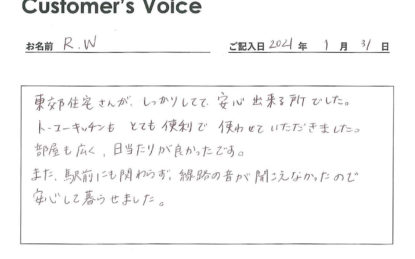 Customer's Voice
お名前 R.W ご記入日 2021 年 1 月 31 日
東郊住宅さんが、しっかりしてて、安心出来る所でした。
トーコーキッチンも とても便利で 使わせていただきました。
部屋も広く、日当たりが良かったです。
また、駅前にも関わらず、線路の音が聞こえなかったので
安心して暮らせました。